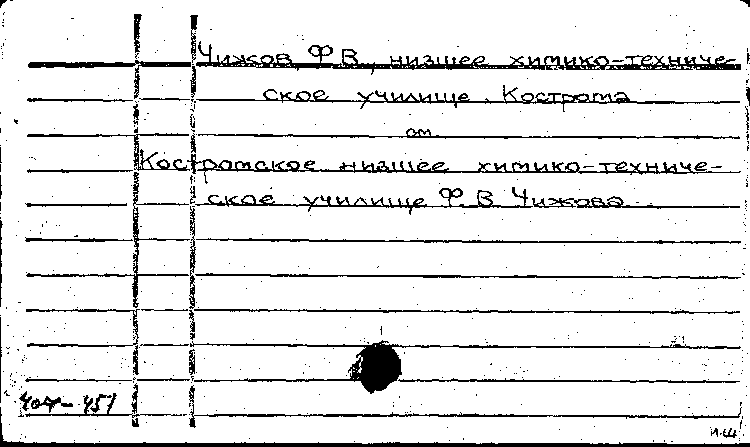 Чижов, Ф. В., низшее химико-техниче-
ское училище. Кострома
см.
Костромское низшее химико-техниче-
ское училище Ф. В. Чижова.
451
л.ш